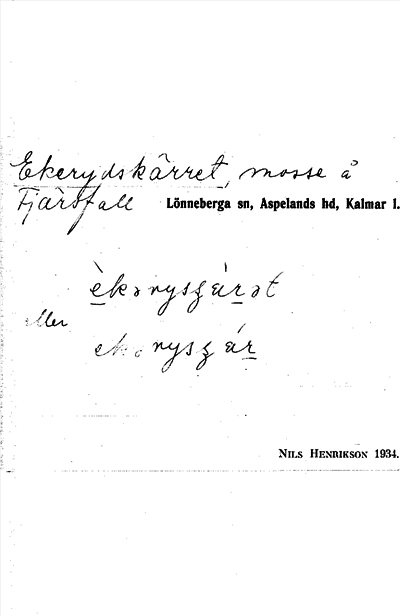 Ekerydskärret, mosse å
Fjärsfall Lönneberga sn, Aspelands hd, Kalmar l.
èkərysʂàrət
eller
ekərysʂár
NILS HENRIKSON 1934.